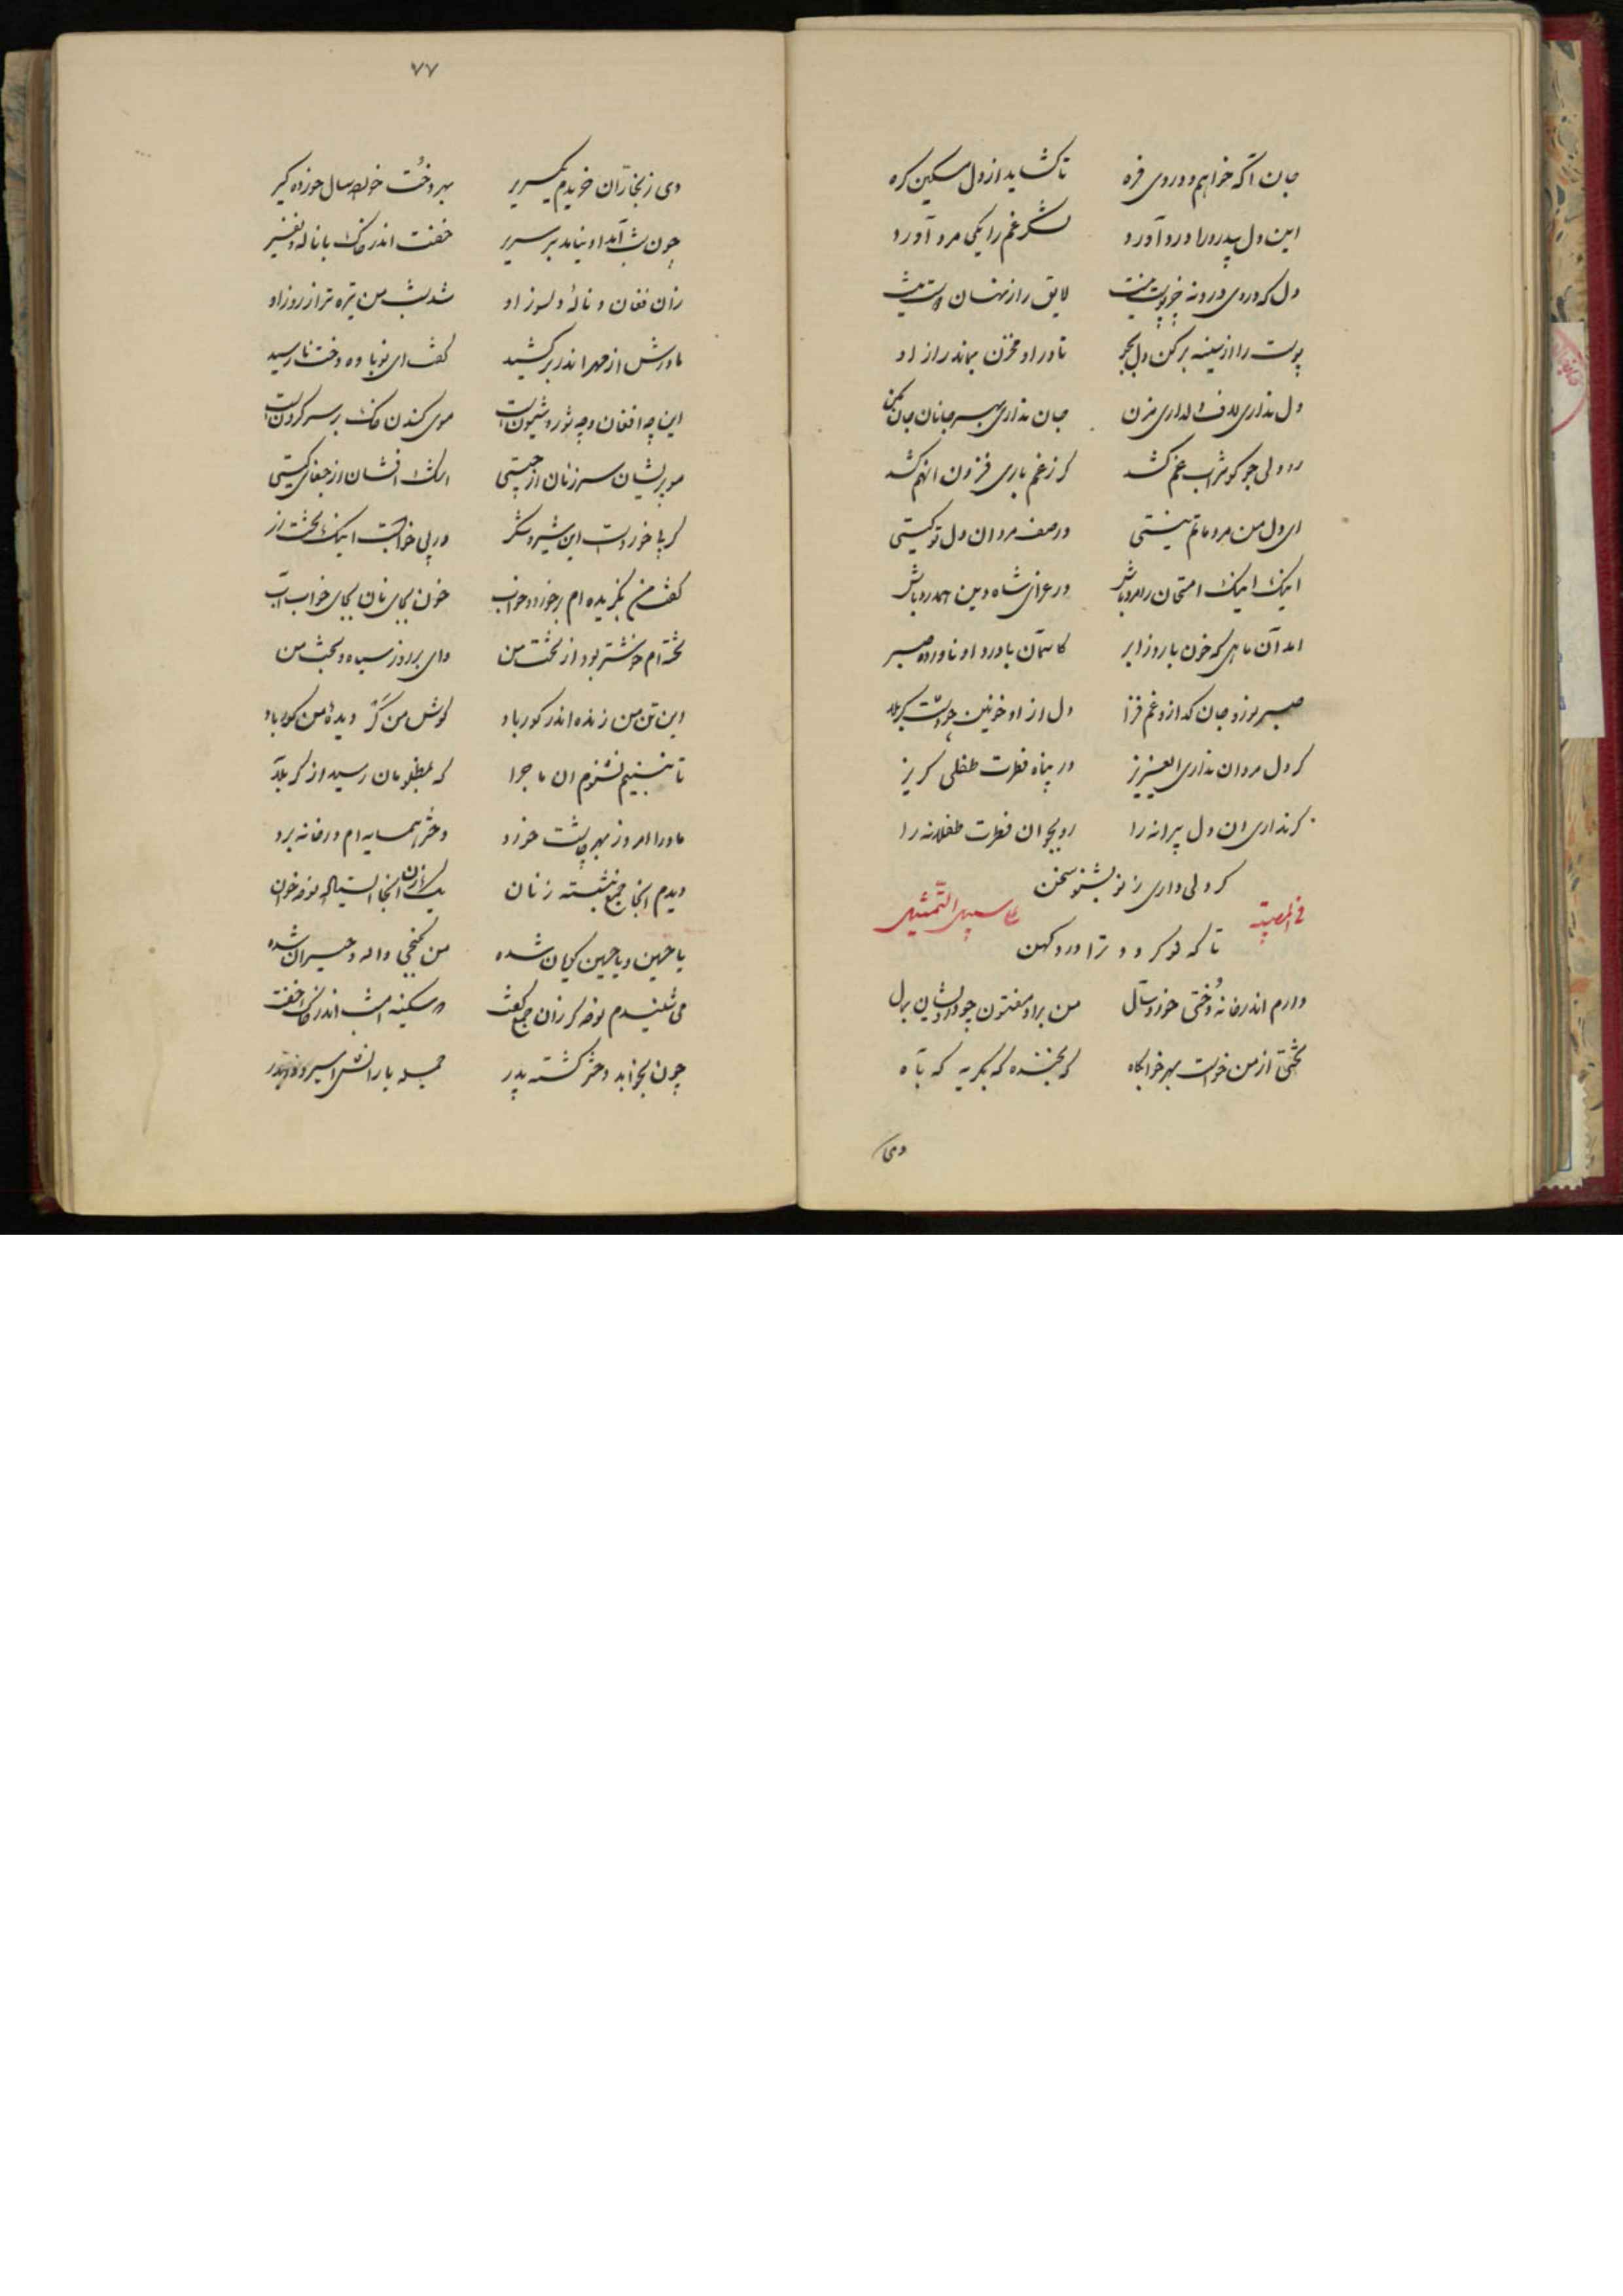 جان اگه خواهم و دردی فره تا گشاید از دل مسکین گره
این دل بیدرد را درد آورد لشکر غم را یکی مرد آورد
دل که دردی در و نه جز پوست نیست لایق راز نهان دوست نیست
پوست را از سینه برکن دل بجو تا در او مخزن بماند راز او
دل نداری لاف دلداری مزن جان نداری بهر جانان جان مکن
رو دلی جو کو شراب غم کشد گر ز غم باری فزون از هم کشد
ای دل من مرد ماتم نیستی در صف مردان دل تو کیستی
اینک اینک امتحان را مرد باش در عزای شاه دین همدرد باش
آمد آن ماهی که خون بارد ز ابر کاسمان با درد او ناورده صبر
صبر سوز و جان گداز و غم فزا دل از او خونین چو دشت کربلا
گر دل مردان نداری ای عزیز در پناه فطرت طفلی گریز
گر نداری آن دل پیرانه را رو بجو آن فطرت طفلانه را
گر دلی داری ز نو بشنو سخن
فی المصیبة علی سبیل التمثیل
تا که نو گردد ترا درد کهن
دارم اندر خانه دُختی خوردسال من بر او مفتون چو درویشان برل
تختی از من خواست بهر خوابگاه گه بخنده گه بگریه گه بآه
دی
۷۷
دی ز نجاران خریدم یکسریر بهر دخُت خوردسال خورده گیر
چون شب آمد او نیامد بر سریر خفت اندر خاک با ناله و نفیر
زان فغان و نالهٔ دلسوز او شد شب من تیره تر از روز او
مادرش از مهر اندر بر کشید گفت ای نوباوه دخت نارسید
این چه افغان و چه شور و شیونست موی کندن خاک بر سر کردنست
مو پریشان سر زنان از چیستی اشک افشان از جفای کیستی
گر بپا خوردست این شیر و شکر ور پی خوابست اینک تخت زر
گفت من بگزیده ام بر خورد و خواب خون بجای نان بجای خواب آب
تخته ام خوشتر بود از تخت من وای بر روز سیاه و بخت من
این تن من زنده اندر گور باد گوش من کَر دیدهٔ من کور باد
تا نبینیم نشنوم آن ماجرا که بمظلومان رسید از کربلا
مادرا امروز بهر چاشت خورد دختر همسایه ام در خانه برد
دیدم آنجا جمع بنشسته زنان یک زن آنجا ایستاده نوحه خوان
یا حسین و یا حسین گویان شده من بکنجی واله و حیران شده
می شنیدم نوحه گر زان جمع گفت که سکینه امشب اندر خاک خفت
چون بخوابد دختر گشته پدر جمله یارانش اسیر و در بدر